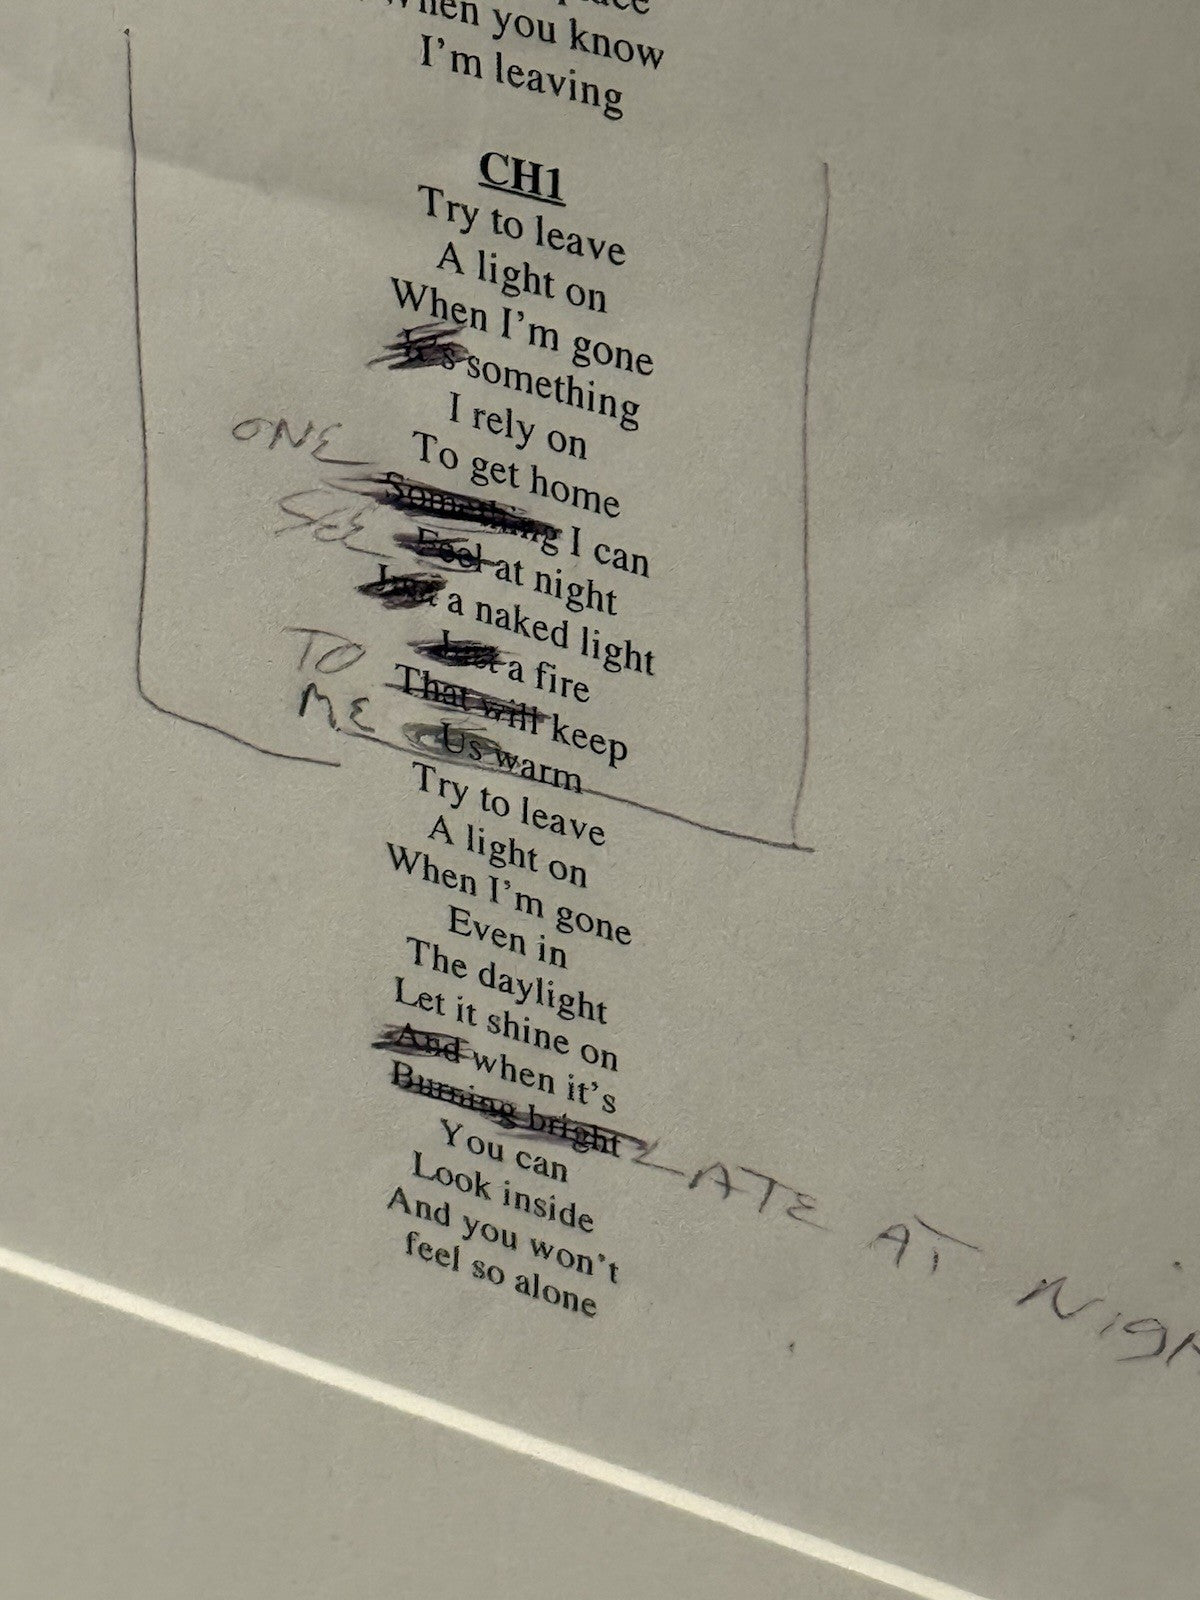 When you know
I'm leaving
CH1
Try to leave
A light on
When I'm gone
It's something
I rely on
To get home
ONE Something I can
SEE Feel at night
Just a naked light
Just a fire
TO That will keep
ME Us warm
Try to leave
A light on
When I'm gone
Even in
The daylight
Let it shine on
And when it's
Burning bright LATE AT
You can
Look inside
And you won't
feel so alone